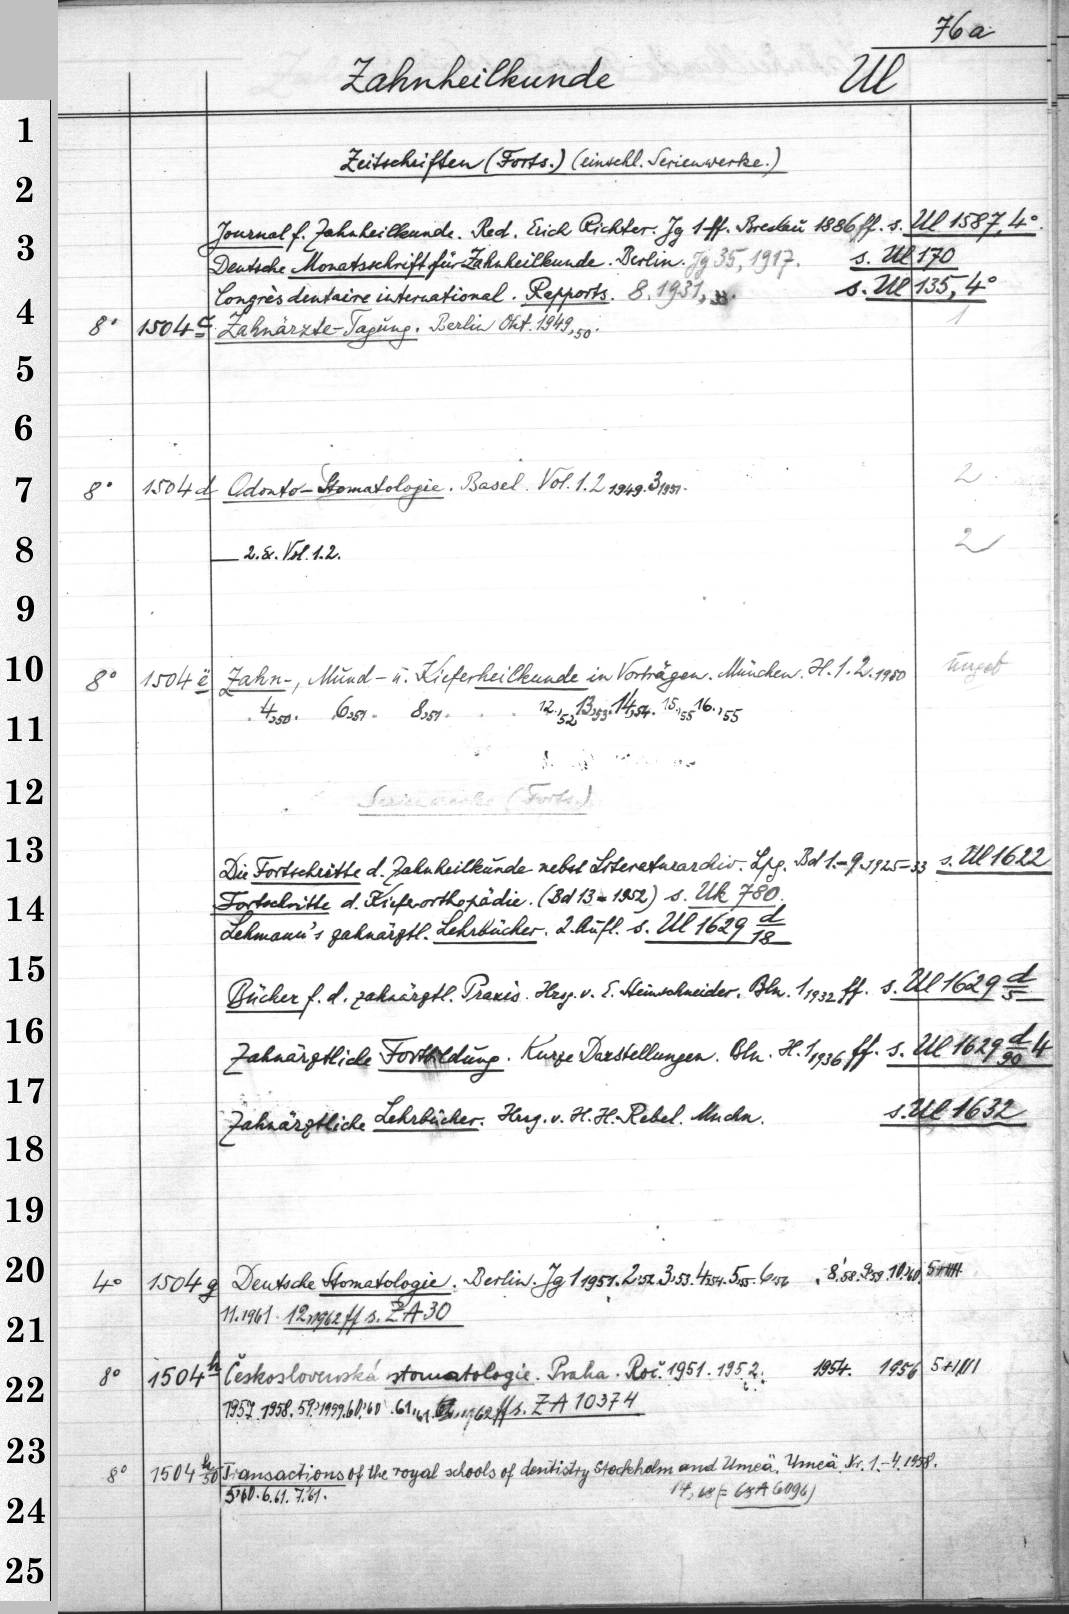 76a
Zahnheilkunde Ul
1
Zeitschriften (Forts.) (einschl. Serienwerke.)
2
Journal f. Zahnheilkunde. Red. Erich Richter. Jg 1 ff. Breslau 1886 ff. s. Ul 1587, 4°.
3
Deutsche Monatsschrift für Zahnheilkunde. Berlin. Jg 35, 1917. s. Ul 170
Congrès dentaire international. Rapports. 8. 1931, s. Ul 135, 4°
4
8° 1504 c Zahnärzte-Tagung. Berlin Okt. 1949, 50. 1
5
6
7
8° 1504 d Odonto-Stomatologie. Basel. Vol. 1. 2 1949. 3 1951. 2
8
— 2. Ex. Vol. 1. 2. 2
9
10
8° 1504 e Zahn-, Mund- u. Kieferheilkunde in Vorträgen. München. H. 1. 2. 1950 ungeb
4,50. 6,51. 8,51. 12.,52 13,53. 14,54. 15.,55 16.,55
11
12
Serienwerke (Forts.)
13
Die Fortschritte d. Zahnheilkunde nebst Literaturarchiv. Lpg. Bd 1.-9. 1925-33 s. Ul 1622
Fortschritte d. Kieferorthopädie. (Bd 13 = 1952) s. Uk 780.
14
Lehmann's zahnärztl. Lehrbücher. 2. Aufl. s. Ul 1629 d/18
15
Bücher f. d. zahnärztl. Praxis. Hrsg. v. E. Heinschneider. Bln. 1 1932 ff. s. Ul 1629 d/5
16
Zahnärztliche Fortbildung. Kurze Darstellungen. Bln. H. 1, 1936 ff. s. Ul 1629 d/90 4
17
Zahnärztliche Lehrbücher. Hrsg. v. H. H. Rebel. Mnchn. s. Ul 1632
18
19
20
4° 1504 g Deutsche Stomatologie. Berlin. Jg 1 1951. 2.52. 3.53. 4.54. 5.55. 6.56 8.58. 9.59. 10.60.
21
11.1961. 12,1962 ff s. ZA 30
22
8° 1504 h Československá stomatologie. Praha. Roč. 1951. 1952. 1954. 1956
1957. 1958. 59.1959. 60.'60 .61,61. 1962 ff s. ZA 10374
23
8° 1504 h/50 Transactions of the royal schools of dentistry Stockholm and Umeå. Umeå. Nr. 1.-4. 1958.
5.'60. 6.61. 7.'61. 14, 68 (= 68 A 6096)
24
25